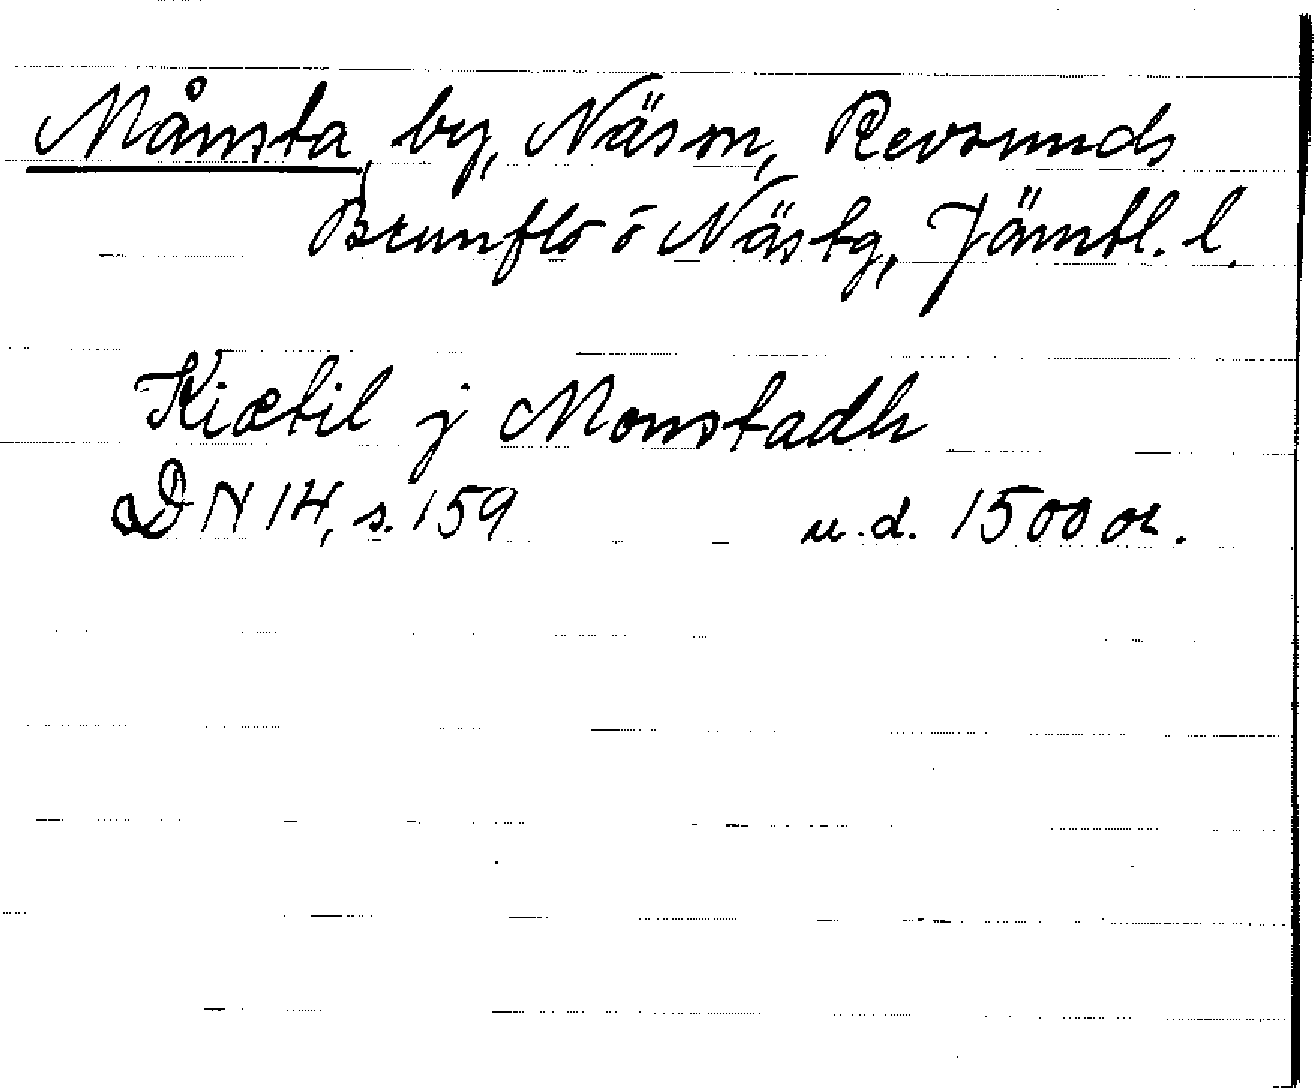 Månsta, by, Näs sn, Revsunds
Brunflo o Näs tg, Jämtl. l.
Kiætil j Monstadh
DN 14, s. 159 u.d. 1500 ok.